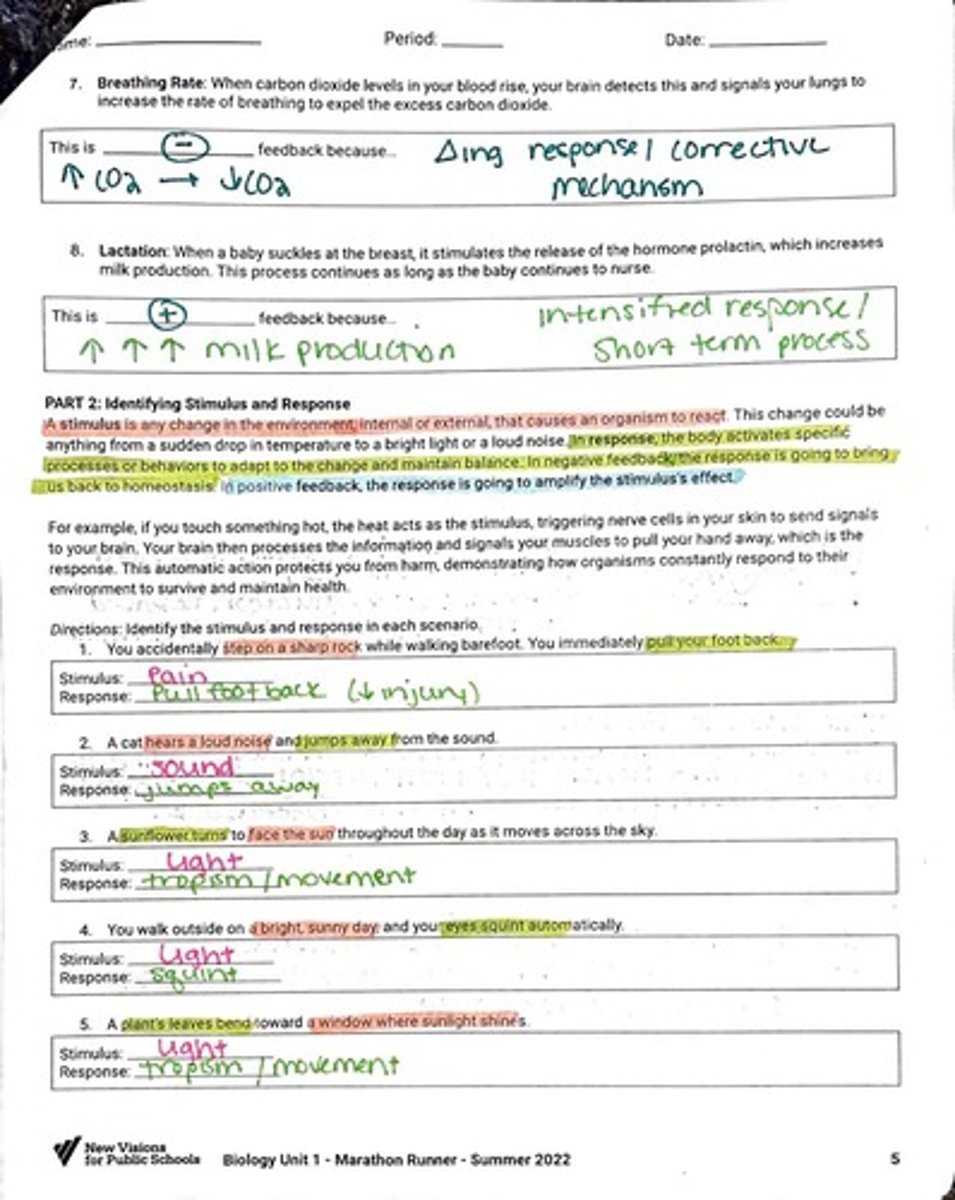 ame: Period: Date:
7. Breathing Rate: When carbon dioxide levels in your blood rise, your brain detects this and signals your lungs to
increase the rate of breathing to expel the excess carbon dioxide.
This is - feedback because... Δing response/ corrective
↑ CO2 → ↓CO2 mechanism
8. Lactation: When a baby suckles at the breast, it stimulates the release of the hormone prolactin, which increases
milk production. This process continues as long as the baby continues to nurse.
This is + feedback because... intensified response/
↑ ↑ ↑ milk production short term process
PART 2: Identifying Stimulus and Response
A stimulus is any change in the environment, internal or external, that causes an organism to react. This change could be
anything from a sudden drop in temperature to a bright light or a loud noise. In response, the body activates specific
processes or behaviors to adapt to the change and maintain balance. In negative feedback, the response is going to bring
us back to homeostasis. In positive feedback, the response is going to amplify the stimulus's effect.
For example, if you touch something hot, the heat acts as the stimulus, triggering nerve cells in your skin to send signals
to your brain. Your brain then processes the information and signals your muscles to pull your hand away, which is the
response. This automatic action protects you from harm, demonstrating how organisms constantly respond to their
environment to survive and maintain health.
Directions: Identify the stimulus and response in each scenario.
1. You accidentally step on a sharp rock while walking barefoot. You immediately pull your foot back.
Stimulus: Pain
Response: Pull foot back (↓ injury)
2. A cat hears a loud noise and jumps away from the sound.
Stimulus: sound
Response: jumps away
3. A sunflower turns to face the sun throughout the day as it moves across the sky.
Stimulus: Light
Response: tropism / movement
4. You walk outside on a bright, sunny day and your eyes squint automatically.
Stimulus: Light
Response: squint
5. A plant's leaves bend toward a window where sunlight shines.
Stimulus: Light
Response: tropism / movement
New Visions
for Public Schools Biology Unit 1 - Marathon Runner - Summer 2022 5